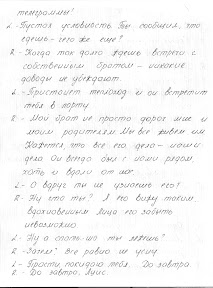 телеграммы?
2.- Пустая условность. Ты сообщил, что
едешь - чего же еще?
2.- Когда так долго ждешь встречи с
собственным братом - никакие
доводы не убеждают.
1.- Пристанет теплоход и он встретит
тебя в порту.
2.- Мой брат не просто дорог мне и
моим родителям. Мы все живем им.
Кажется, что все его дела - наши
дела. Он всегда был с нами рядом,
хоть и вдали от нас.
1.- А вдруг ты не узнаешь его?
2.- Ну что ты? Я его вижу таким
вдохновенным лица его забыть
невозможно.
1.- Ну а спать-то ты ляжешь?
2.- Зачем? Все равно не усну.
1.- Просто покидаю тебя. До завтра.
2.- До завтра, Луис.